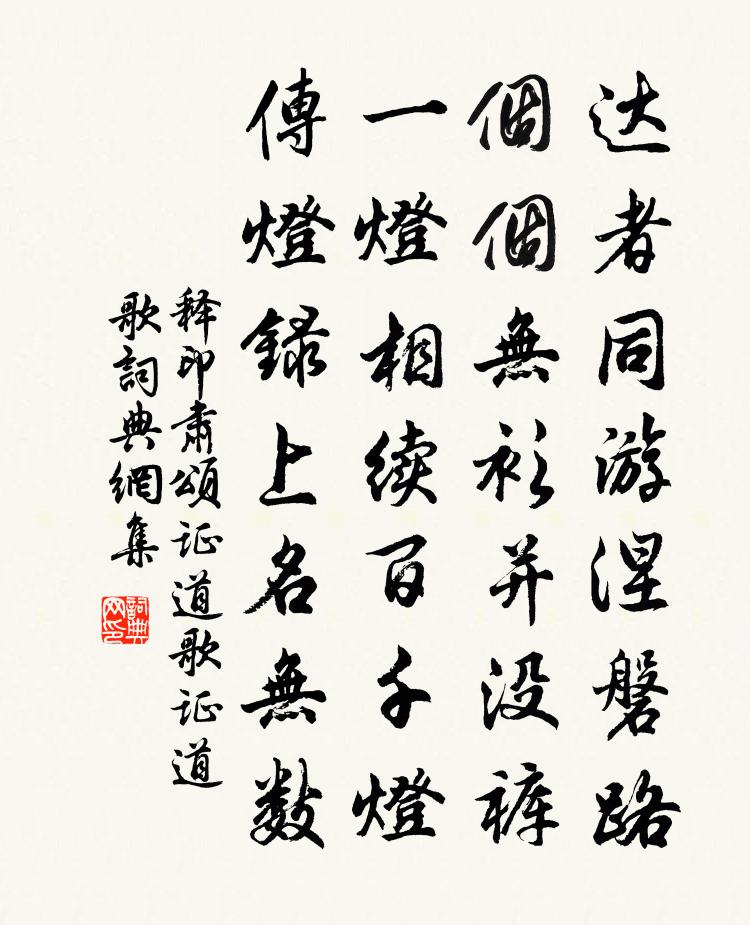 达者同游涅磐路
個個無衫并没裤
一燈相续百千燈
傳燈録上名無数
释印肃頌证道歌证道
歌詞典網集
詞典网印